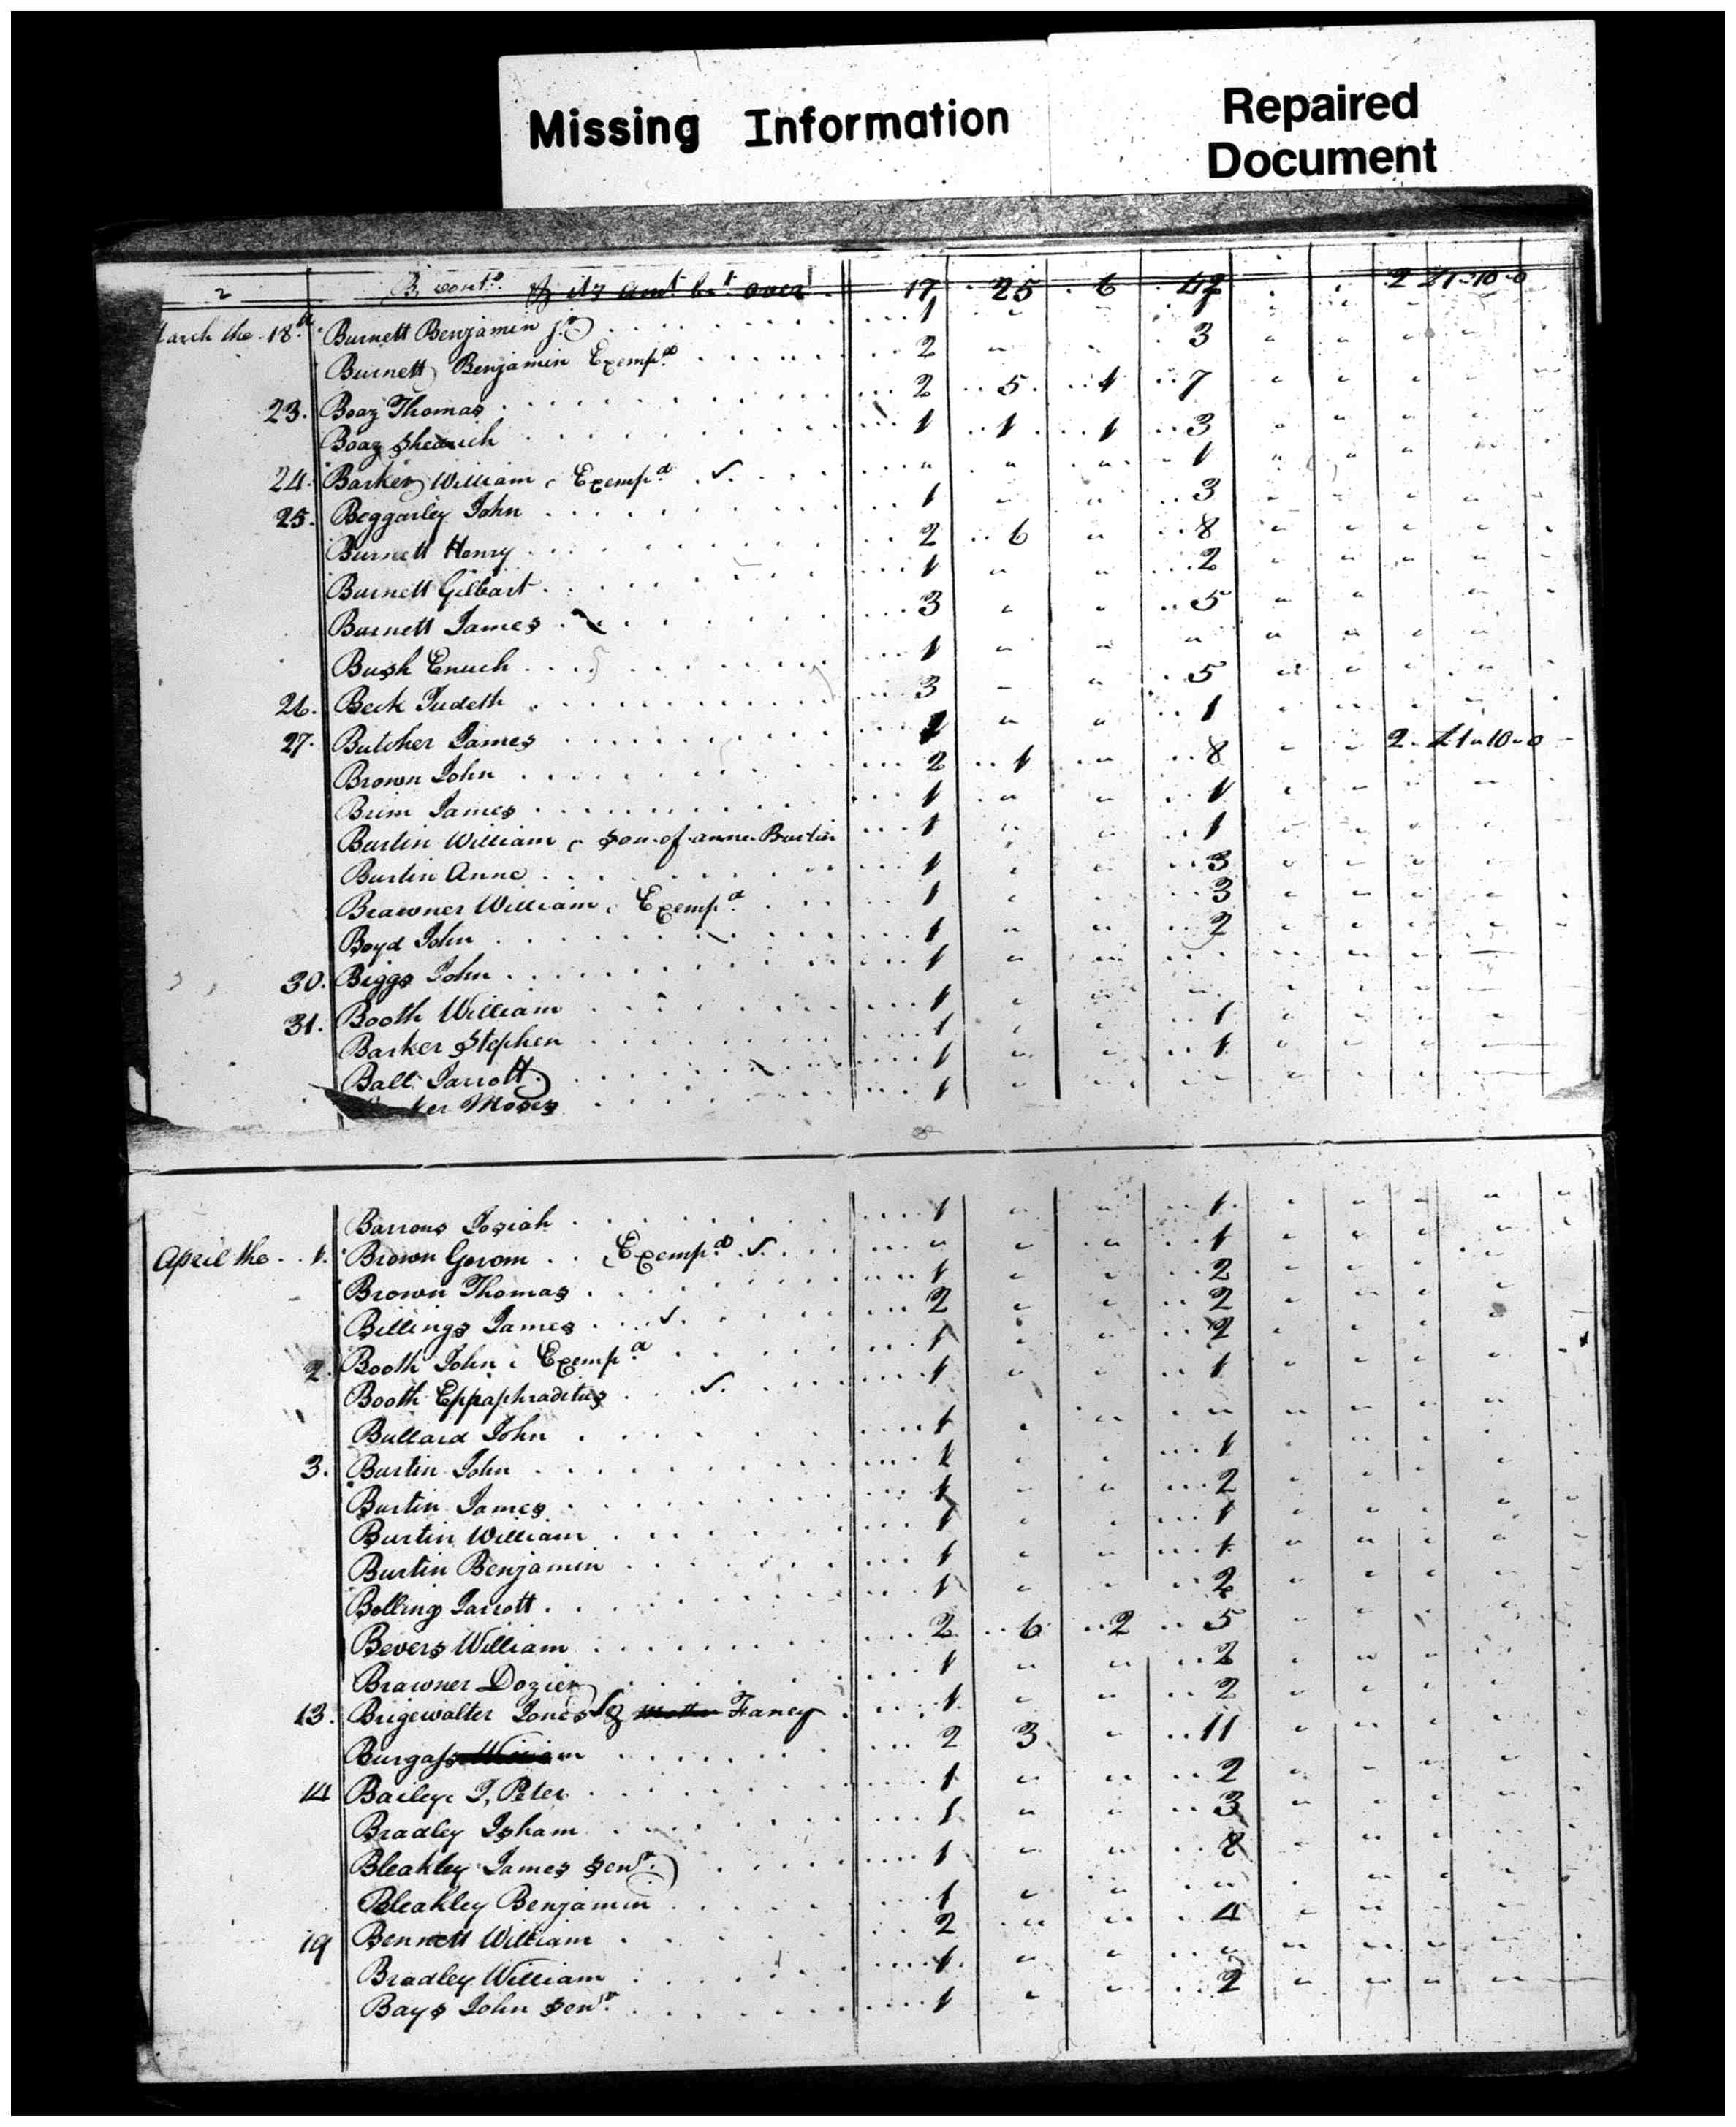 Missing Information
Repaired
Document
2 B, cont.d & its amt. bt. over 17 25 6 42 2 £1-10-0
March the 18th Burnett Benjamin jr. 1 " " 1 " " " "
Burnett Benjamin Exempd. 2 " " 3 " " " "
23. Boaz Thomas 2 5 1 7 " " " "
Boaz Shedrich 1 1 1 3 " " " "
24. Barker William, Exempd. " " " 1 " " " "
25. Beggarley John 1 " " 3 " " " "
Burnett Henry 2 6 " 8 " " " "
Burnett Gilbart 1 " " 2 " " " "
Burnett James 3 " " 5 " " " "
Bush Enuch 1 " " " " " " "
26. Beck Judeth 3 " " 5 " " " "
27. Butcher James " " 1 " " " "
Brown John 2 1 " 8 " " 2 £1-10-0
Brim James 1 " " 1 " " " "
Burtin William, son of anne Burtin 1 " " 1 " " " "
Burtin Anne 1 " " 3 " " " "
Brawner William, Exempd. 1 " " 3 " " " "
Boyd John 1 " " 2 " " " "
30. Biggs John 1 " " " " " " "
31. Booth William 1 " " " " " " "
Barker Stephen 1 " " 1 " " " "
Ball Jarrott 1 " " 1 " " " "
ker Moses 1 " " " " " " "
Barrons Josiah 1 " " 1 " " " "
April the 1. Brown Gerom Exempd. " " " 1 " " " "
Brown Thomas 1 " " 2 " " " "
Billings James 2 " " 2 " " " "
2. Booth John, Exempd. 1 " " 2 " " " "
Booth Eppaphraditus 1 " " 1 " " " "
Bullard John 1 " " " " " " "
3. Burtin John 1 " " 1 " " " "
Burtin James 1 " " 2 " " " "
Burtin William 1 " " 1 " " " "
Burtin Benjamin 1 " " 1 " " " "
Bolling Jarrott 1 " " 2 " " " "
Bevers William 2 6 2 5 " " " "
Brawner Dozier 1 " " 2 " " " "
13. Brigewalter Jones & Faney 1 " " 2 " " " "
Burgass William 2 3 " 11 " " " "
14 Bailey, J, Peter 1 " " 2 " " " "
Bradley Isham 1 " " 3 " " " "
Bleakley James Senr. 1 " " 8 " " " "
Bleakley Benjamin 1 " " " " " " "
19 Bennett William 2 " " 4 " " " "
Bradley William 1 " " " " " " "
Bays John Senr. 1 " " 2 " " " "